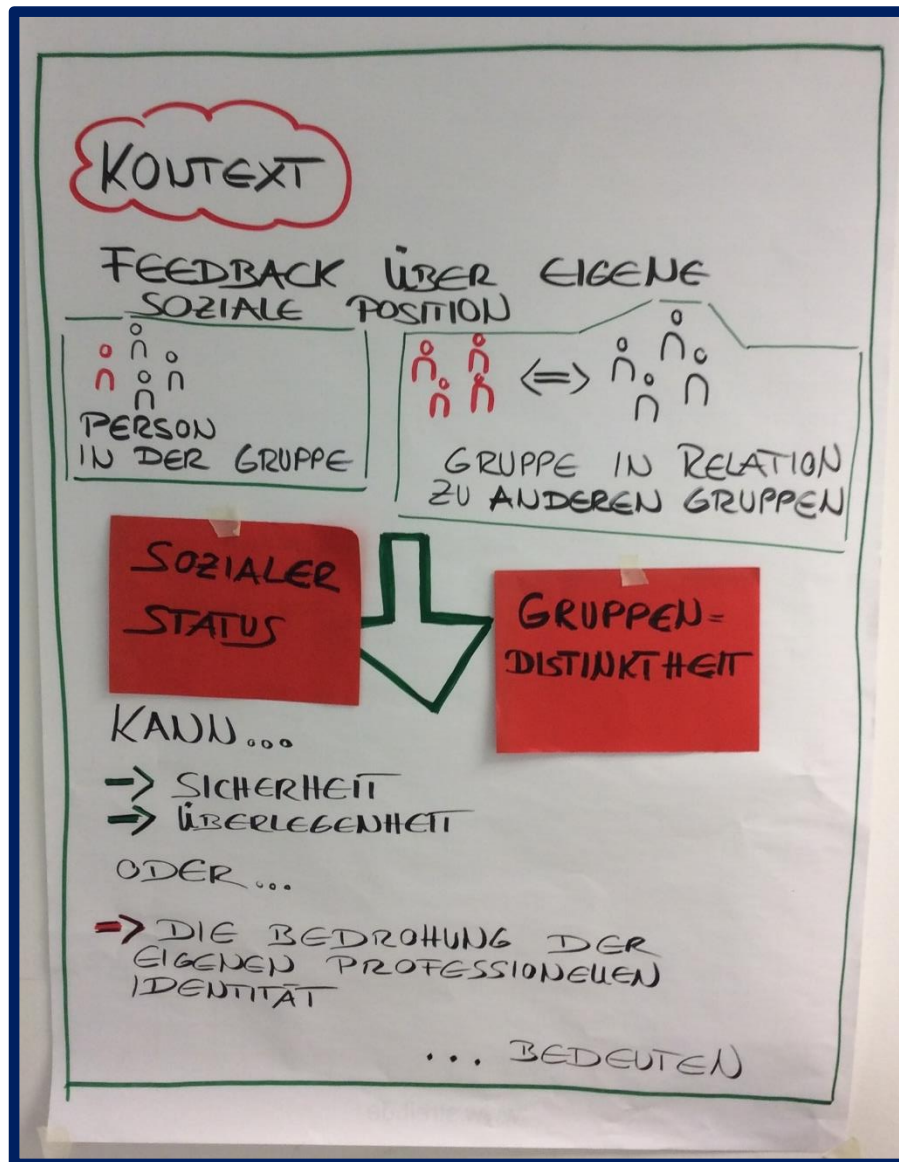 KONTEXT
FEEDBACK ÜBER EIGENE
SOZIALE POSITION
PERSON
IN DER GRUPPE
GRUPPE IN RELATION
ZU ANDEREN GRUPPEN
SOZIALER
STATUS
GRUPPEN=
DISTINKTHEIT
KANN...
-> SICHERHEIT
-> ÜBERLEGENHEIT
ODER...
=> DIE BEDROHUNG DER
EIGENEN PROFESSIONELLEN
IDENTITÄT
... BEDEUTEN